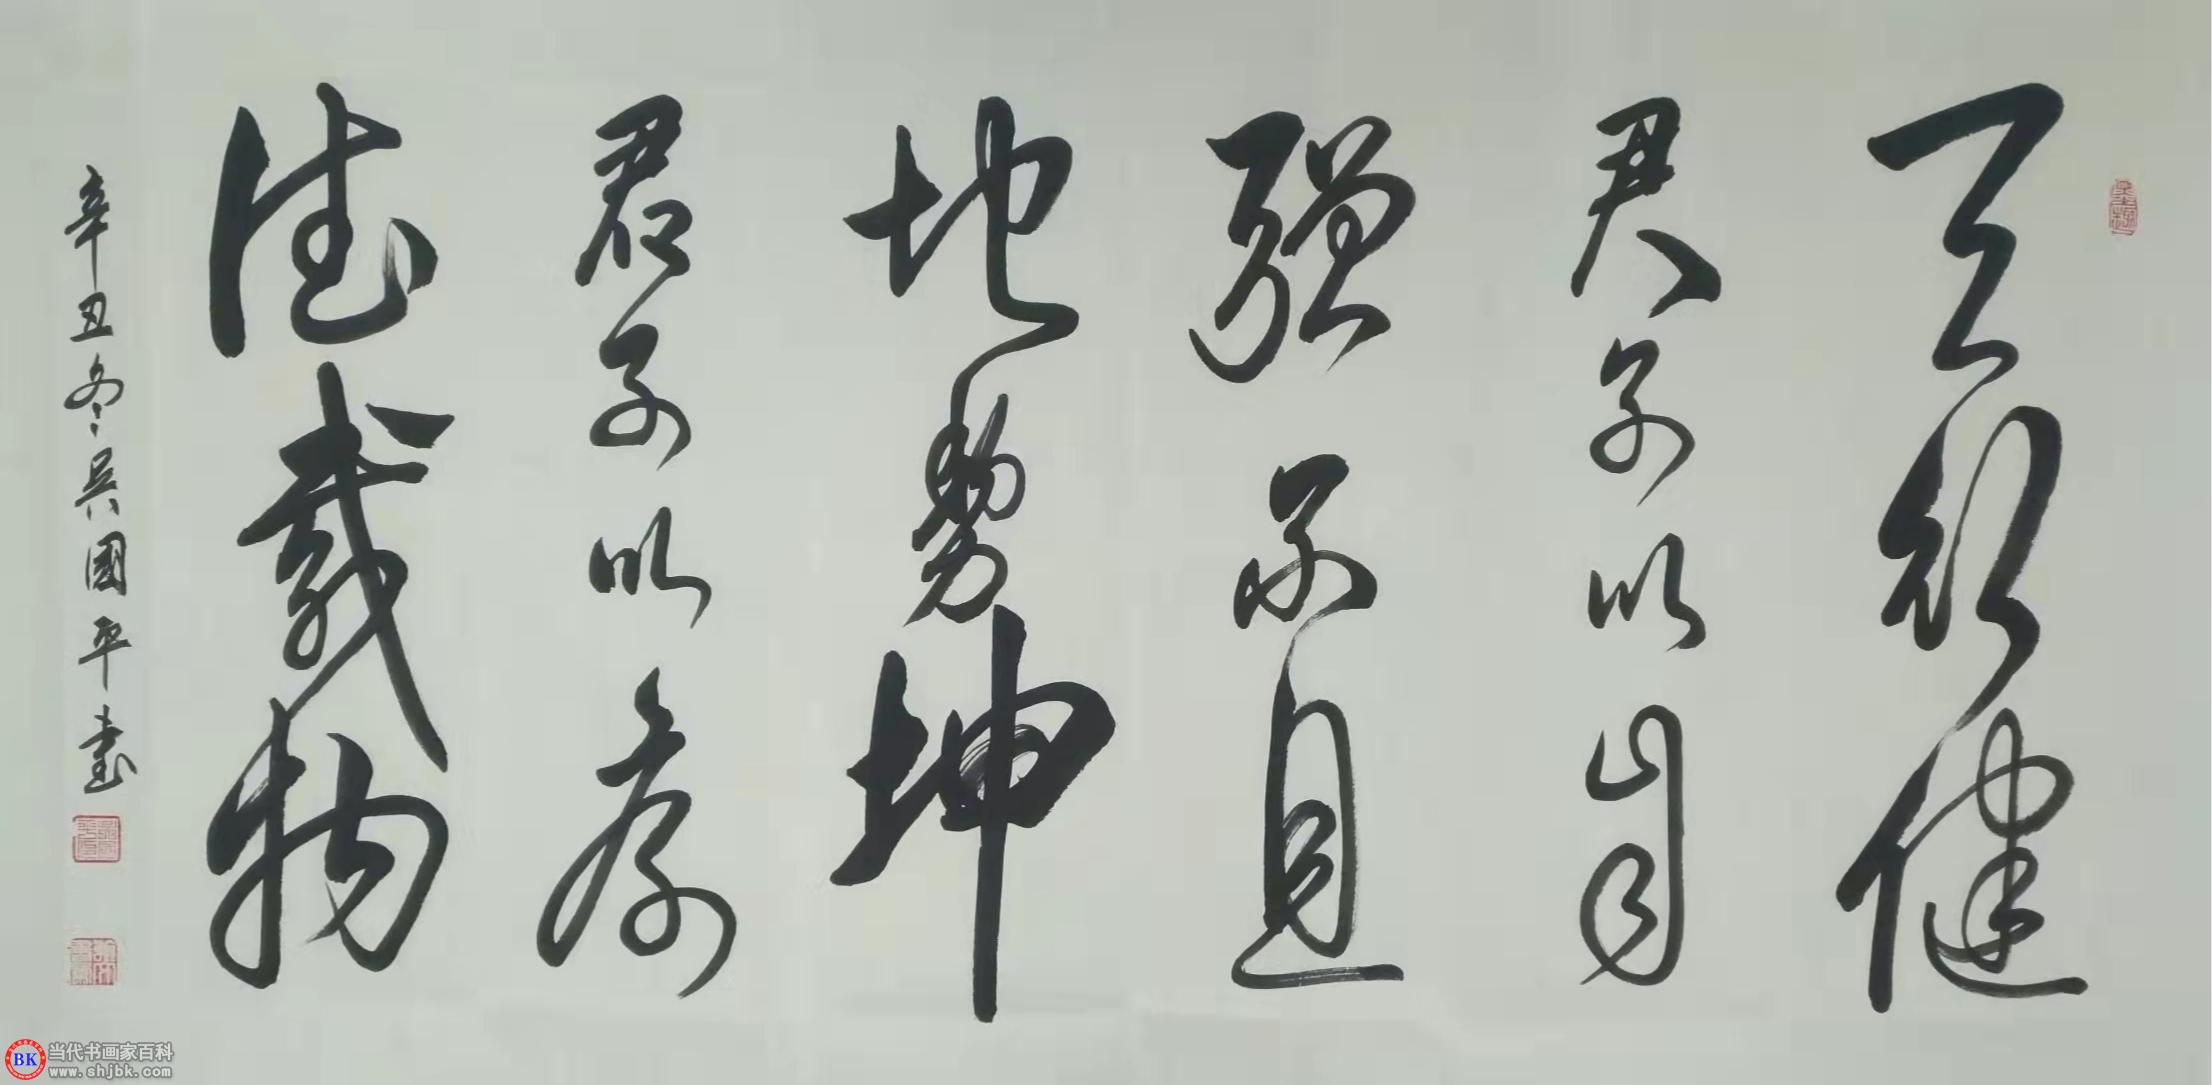 天行健
君子以自
强不息
地势坤
君子以厚
德载物
辛丑冬吴國平書
BK 当代书画家百科
www.shjbk.com